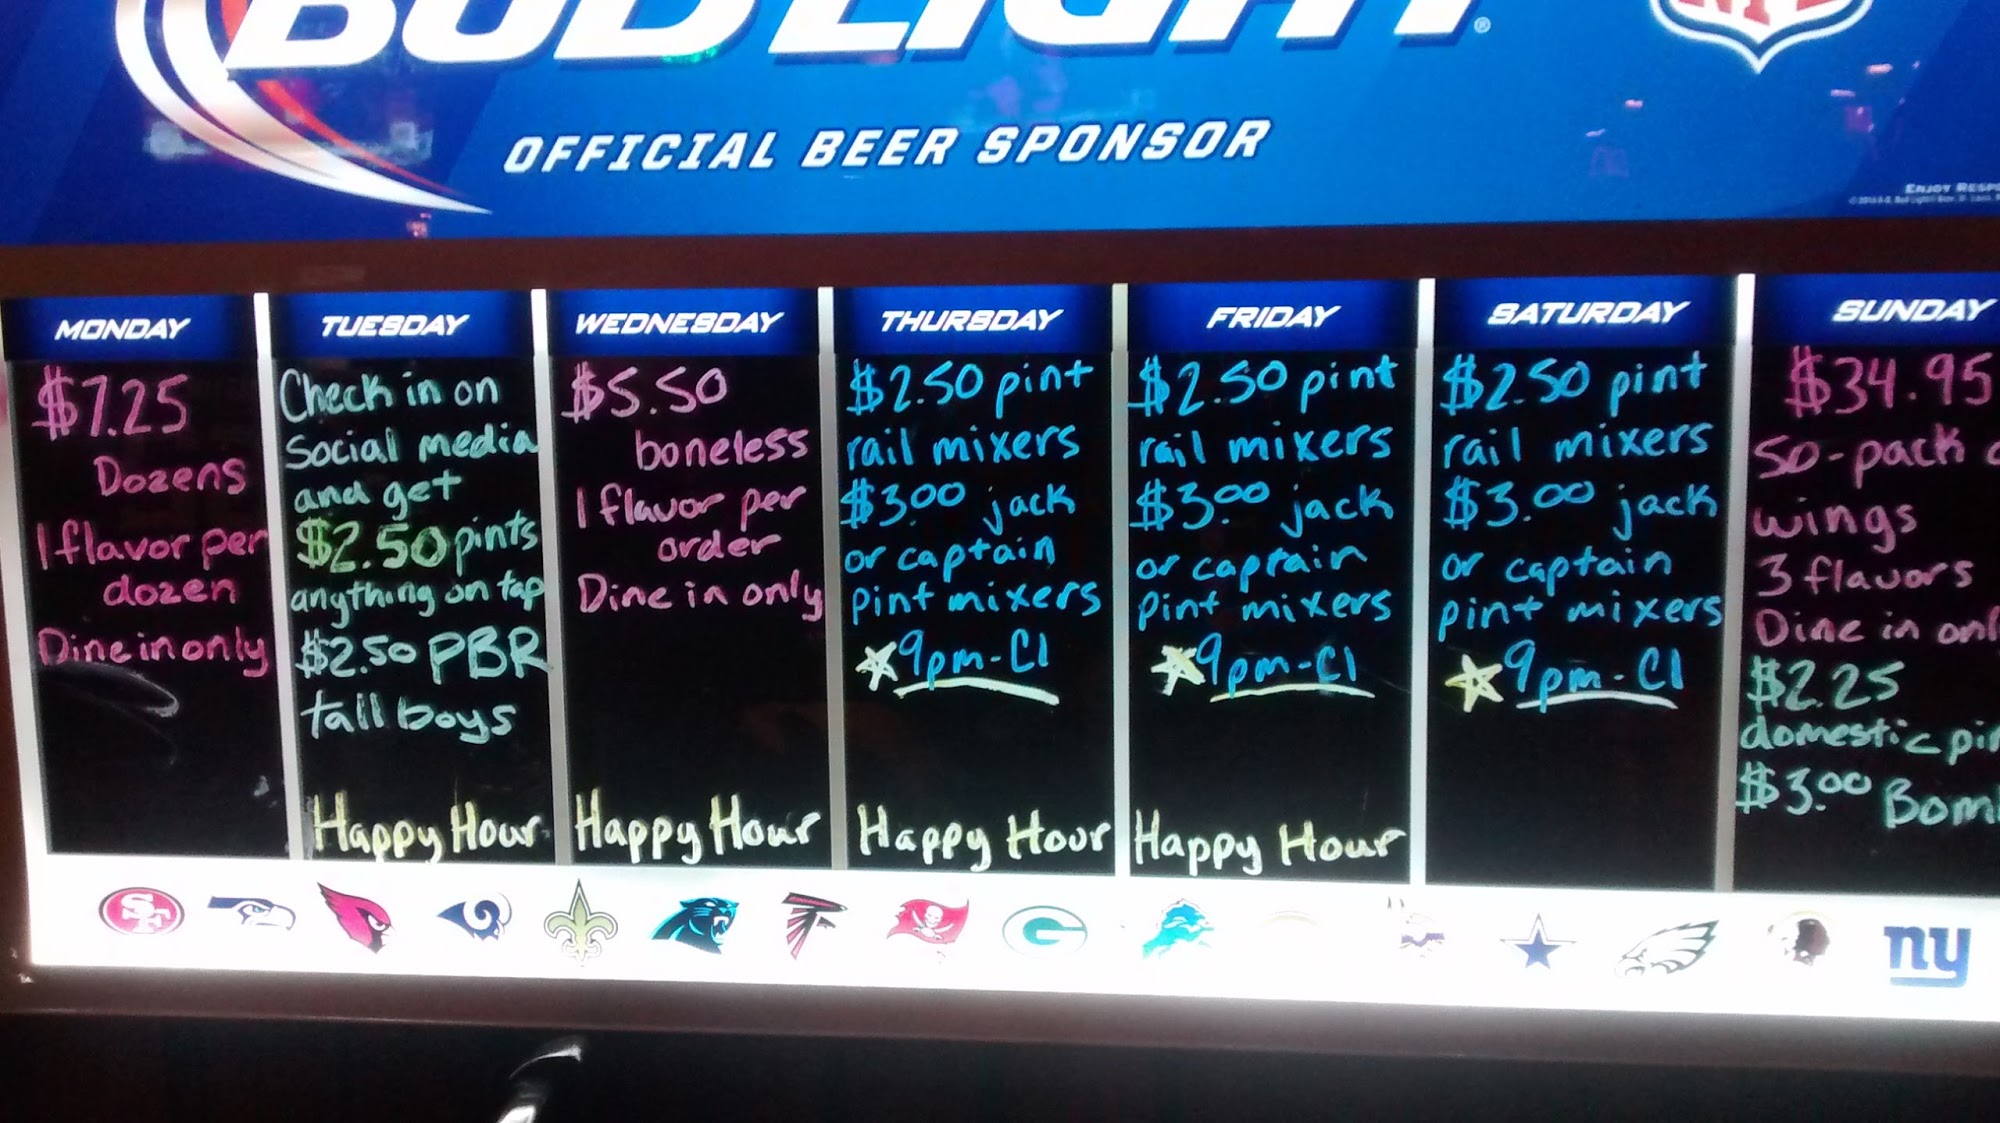 BUD LIGHT
NFL
OFFICIAL BEER SPONSOR
ENJOY
MONDAY
$7.25
Dozens
1 flavor per
dozen
Dine in only
TUESDAY
Check in on
Social media
and get
$2.50 pints
anything on tap
$2.50 PBR
tall boys
Happy Hour
WEDNESDAY
$5.50
boneless
1 flavor per
order
Dine in only
Happy Hour
THURSDAY
$2.50 pint
rail mixers
$3.00 jack
or captain
pint mixers
9pm-Cl
Happy Hour
FRIDAY
$2.50 pint
rail mixers
$3.00 jack
or captain
pint mixers
9pm-Cl
Happy Hour
SATURDAY
$2.50 pint
rail mixers
$3.00 jack
or captain
pint mixers
9pm-Cl
SUNDAY
$34.95
50-pack
wings
3 flavors
Dine in onl
$2.25
domestic pin
$3.00 Bom
SF
G
ny